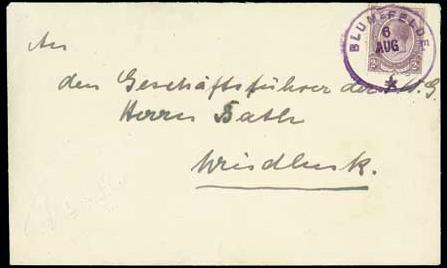 BLUMFELDE.
6
AUG
2D
An
den Geschäftsführer der
Herrn Bath
Windhuk.